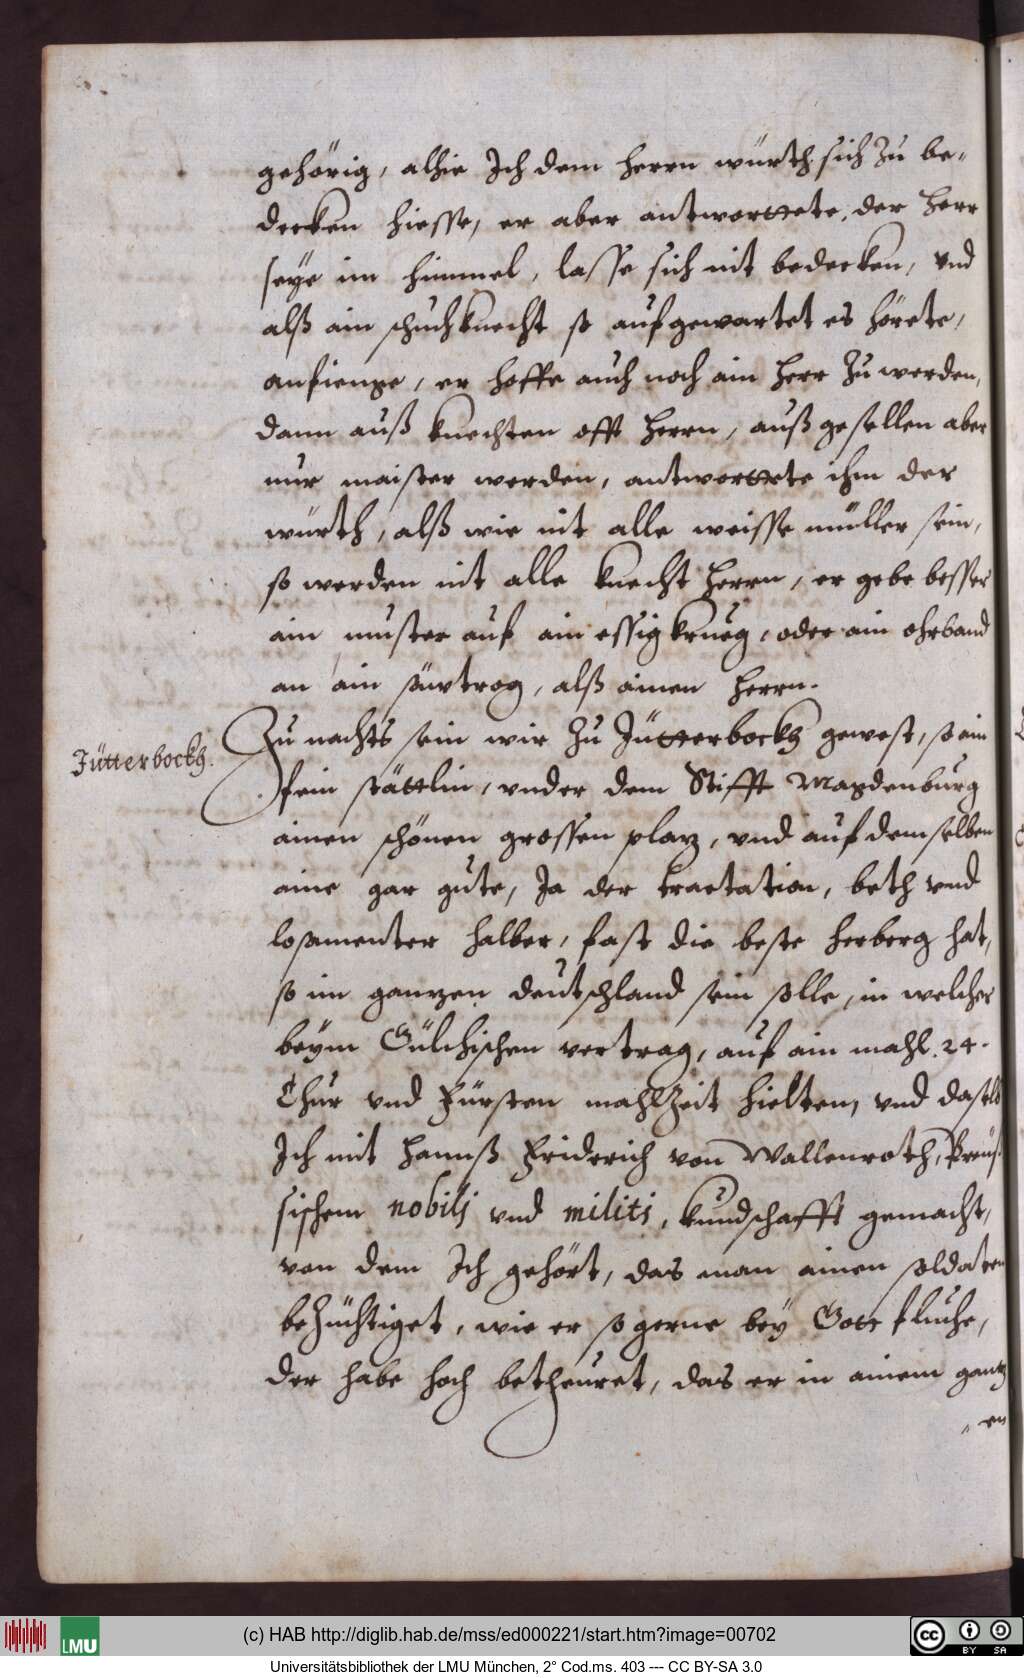 gehörig, alhie Ich dem herrn würth sich zu be-
decken hiesse, er aber antworttete, der Herr
seye im himmel, lasse sich nit bedecken, vnd
alß ain schuchknecht so aufgewartet es hörete,
anfienge, er hoffe auch noch ain Herr zu werden,
dann auß knechten offt Herrn, auß gesellen aber
nur maister werden, antworttete ihm der
würth, alß wie nit alle weisse müller sein,
so werden nit alle knecht Herrn, er gebe besser
ain muster auf ain essigkrueg, oder ain ohrband
an ain säwtrog, alß ainen Herrn.
Jütterbockh.
Zu nachts sein wir zu Jütterbockh gewest, so ein
fein stättlin, vnder dem Stifft Magdenburg
ainen schönen grossen plaz, vnd auf demselben
aine gar gute, Ja der tractation, beth vnd
losamenter halber, fast die beste herberg hat,
so im ganzen deutschland sein solle, in welcher
beym Gülchischen vertrag, auf ain mahl 24.
Chur vnd Fürsten mahlzeit hielten, vnd daselb
Ich mit Hannß Friderich von Wallenroth, Preüs-
sischem nobilj vnd militi, kundschafft gemacht,
von dem Ich gehört, das man ainen soldaten
bezüchtiget, wie er so gerne bey Gott fluche,
der habe hoch betheuret, das er in ainem gantz
" en
(c) HAB http://diglib.hab.de/mss/ed000221/start.htm?image=00702
LMU
BY SA
Universitätsbibliothek der LMU München, 2° Cod.ms. 403 --- CC BY-SA 3.0